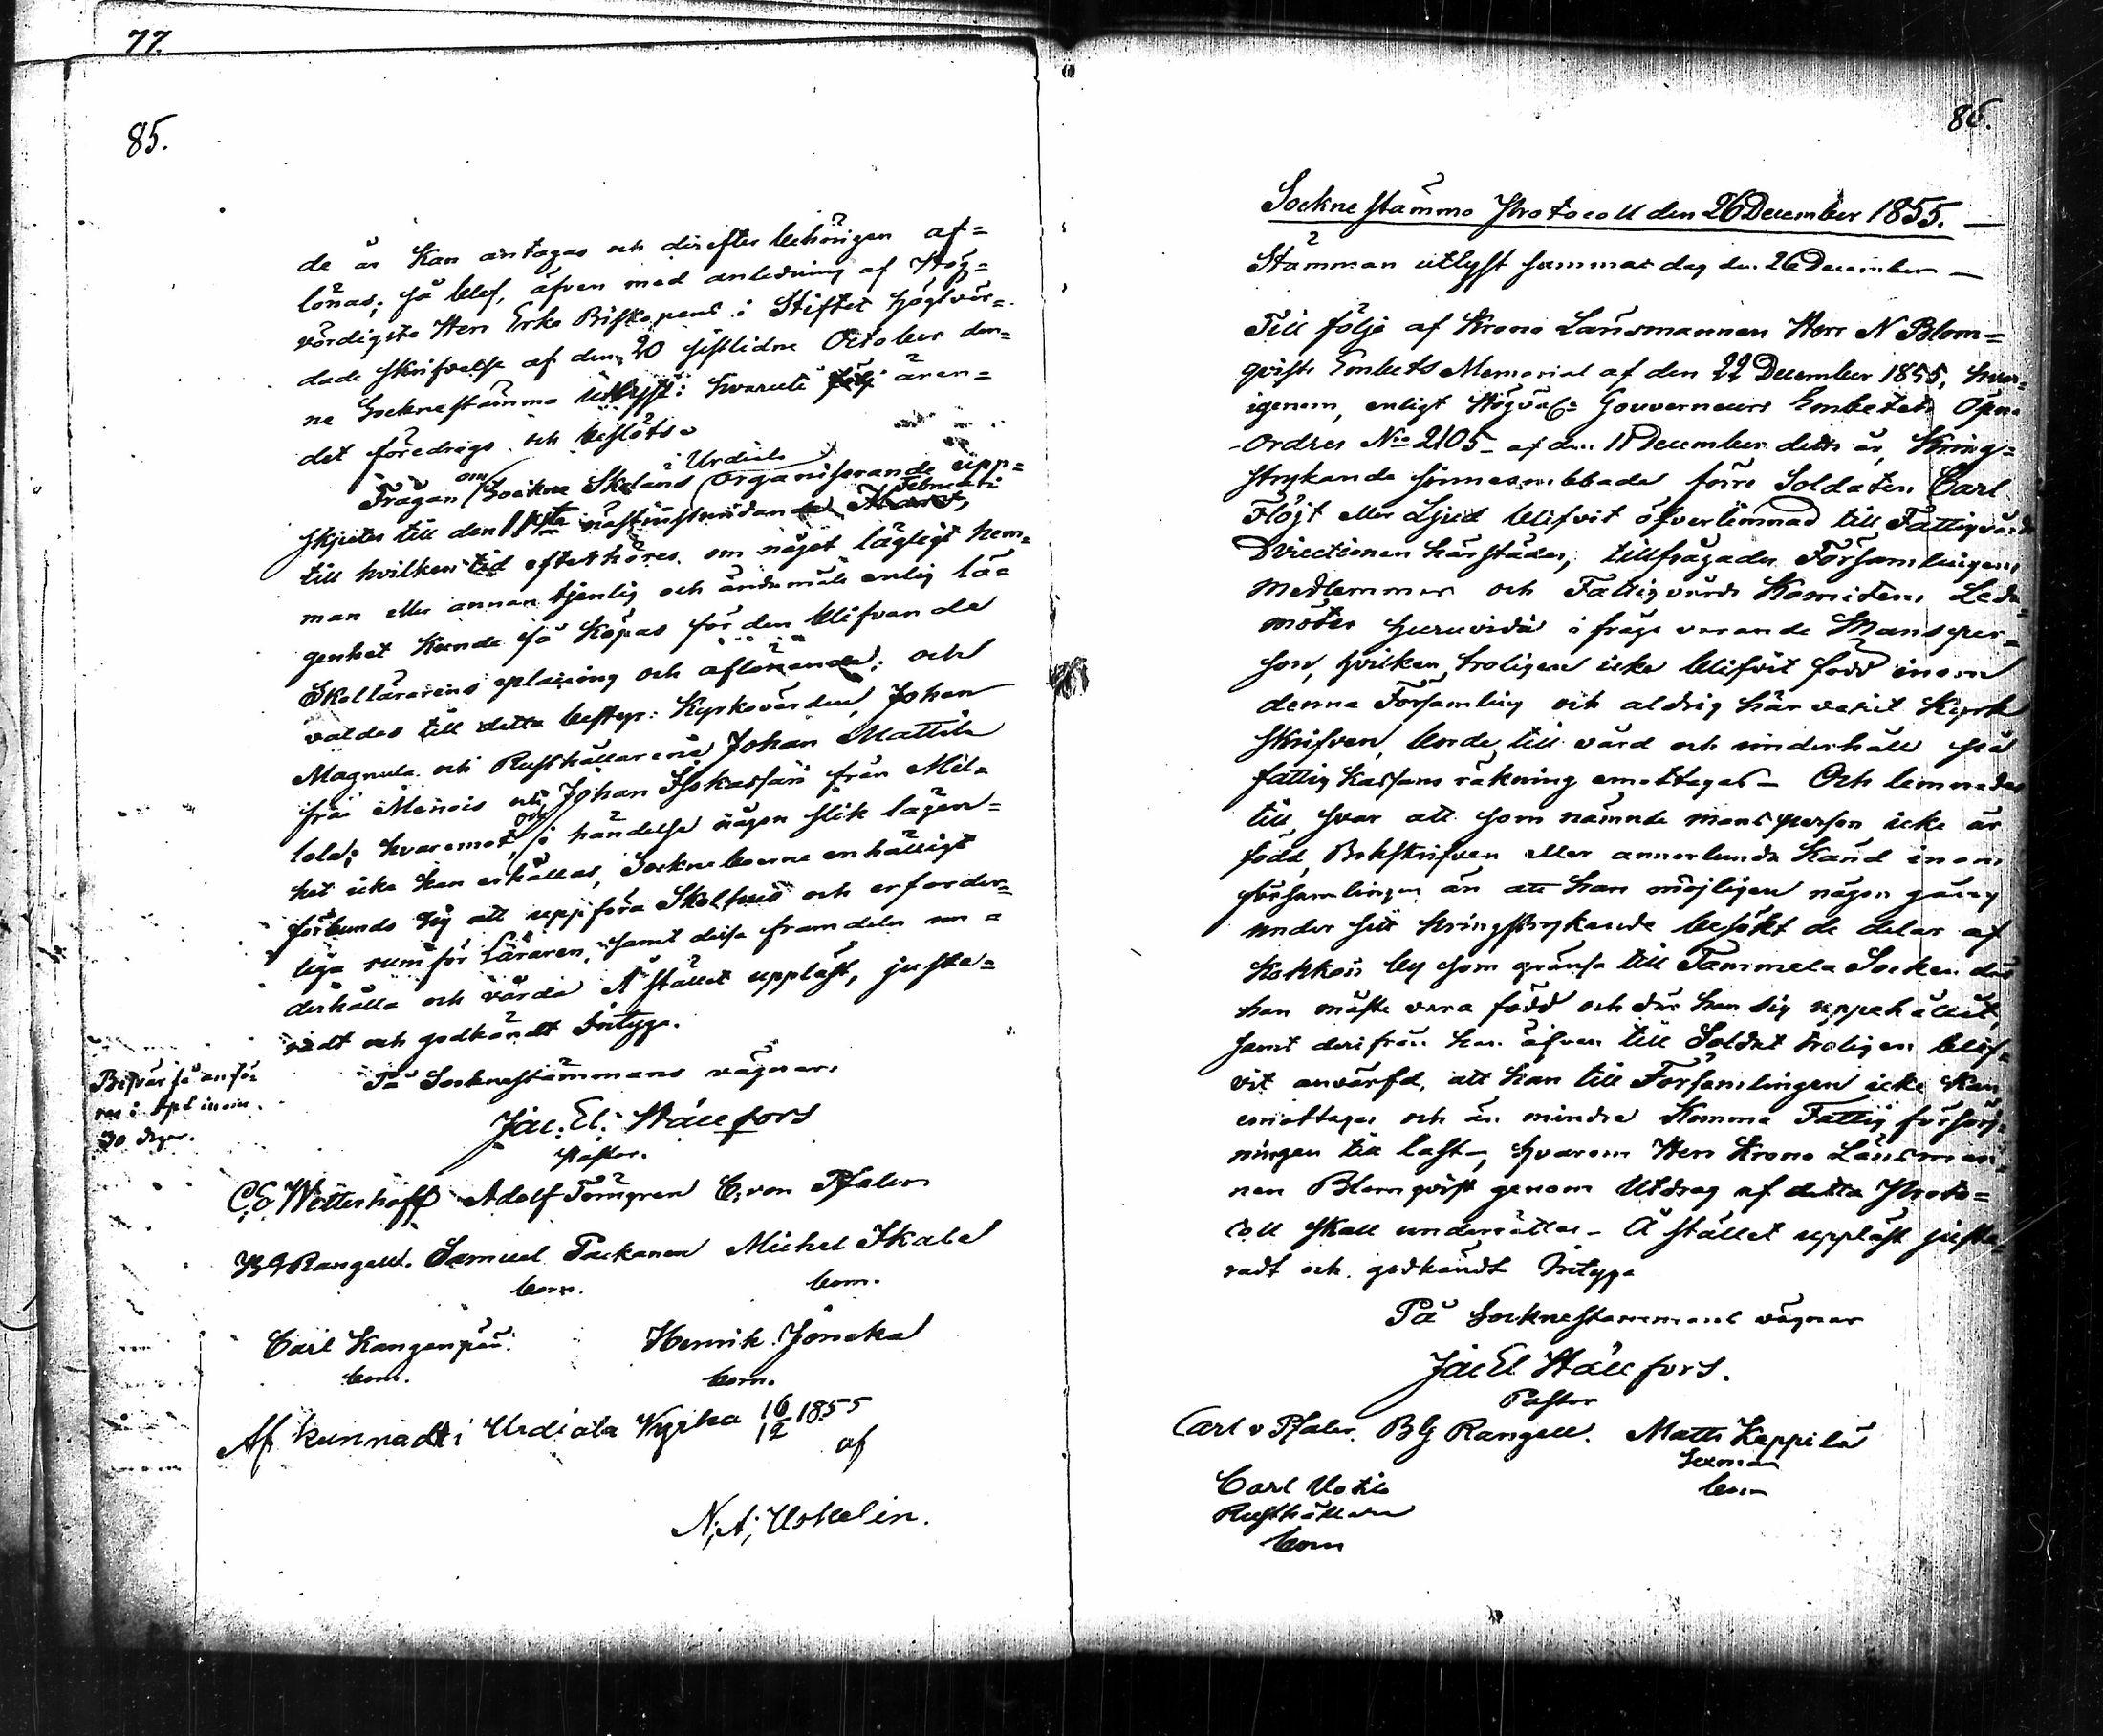 77.
85.
de år kan antagas och derefter behörigen af=
lönas; så blef, äfven med anledning af Hög=
vördigste Herr Erke Biskopens i Stiftet högtvör=
dade skrifvelse af den 20 sistlidne October den=
ne Socknestämma utlyst: hvaruti ären=
det föredrogs och beslöts
i Urdiala
Frågan om Sockne Skolans organiserande upp=
Februarii
skjutes till den 1sta nästinstundande Mars,
till hvilken tid efterhöres om något lägligt hem=
man eller annan tjenlig och ändamåls enlig lä=
genhet kunde få köpas för den blifvande
Skollärarens placering och aflönande; och
valdes till detta bestyr: Kyrkovärden, Johan
Magnula och Rusthållarene Johan Mattila
från Menois och Johan Isokassari från Mel=
lola; hvaremot, om i händelse någon slik lägen=
het icke kan erhållas, Sockneboerne enhälligt
förbundo sig att uppföra Skolhus och erforder=
liga rum för Läraren, samt dessa framdeles un=
derhålla och vårda Å stället uppläst, juste=
radt och godkändt betyga.
På Sockneståmmans vägnar
Besvär få anfö=
ras i inom
30 dagar.
Jac. El. Hällfors
Pastor.
C E Wetterhoff Adolf Törngren C. von Pfaler
B G Rangell. Samuel Packanen Michel Skala
bom. bom.
Carl Kangenpää Henrik Jönckа
bom. bom.
Af kunnadt i Urdiala Kyrka 16/12 1855
af
N. A. Uskelin.
86.
Sockne stämmo Protocoll den 26 December 1855.
Stämman utlyst samma dag den 26 December
Till följe af Krono Länsmannen Herr N Blom=
qvists Embets Memorial af den 22 December 1855, hvar=
igenom, enligt Högväl= Gouverneurs Embetets Öpna
Ordres No 2105 af den 11 December detta år, Kring=
strykande sinnesrubbade förre Soldaten Carl
Flöjt eller Ljud blifvit öfverlemnad till Fattigvårds
Directionen härstädes, tillfrågades Församlingens
medlemmar och Fattigvårds Komitens Leda=
möter huruvida i fråga varande Mansper=
son, hvilken troligen icke blifvit född inom
denna Församling och aldrig här varit Kyrk
skrifven, borde till vård och underhåll på
fattig Kassans räkning emottagas - Och lemnades
till svar att som nämnde mansperson icke är
född, Bokskrifven eller annorlunda känd inom
församlingen än att han möjligen någon gång
under sitt kringstrykande besökt de delar af
Kokkois by som gränsa till Tammela Socken der
han måste vara född och der han sig uppehållit,
samt derifrån han äfven till Soldat troligen blif=
vit anvärfd, att han till Församlingen icke kan
emottagas och än mindre komma Fattig försörj=
ningen till last, hvarom Herr Krono Länsman=
nen Blomqvist genom Utdrag af detta Proto=
coll skall underrättas - Å stället uppläst juste=
radt och godkändt betyga
På Socknestämmans vägnar
Jac El Hällfors.
Pastor
Carl v Pfaler. B G Rangell. Matts Keppilä
Sexman
Carl Uotila bom
Rusthållare
bom